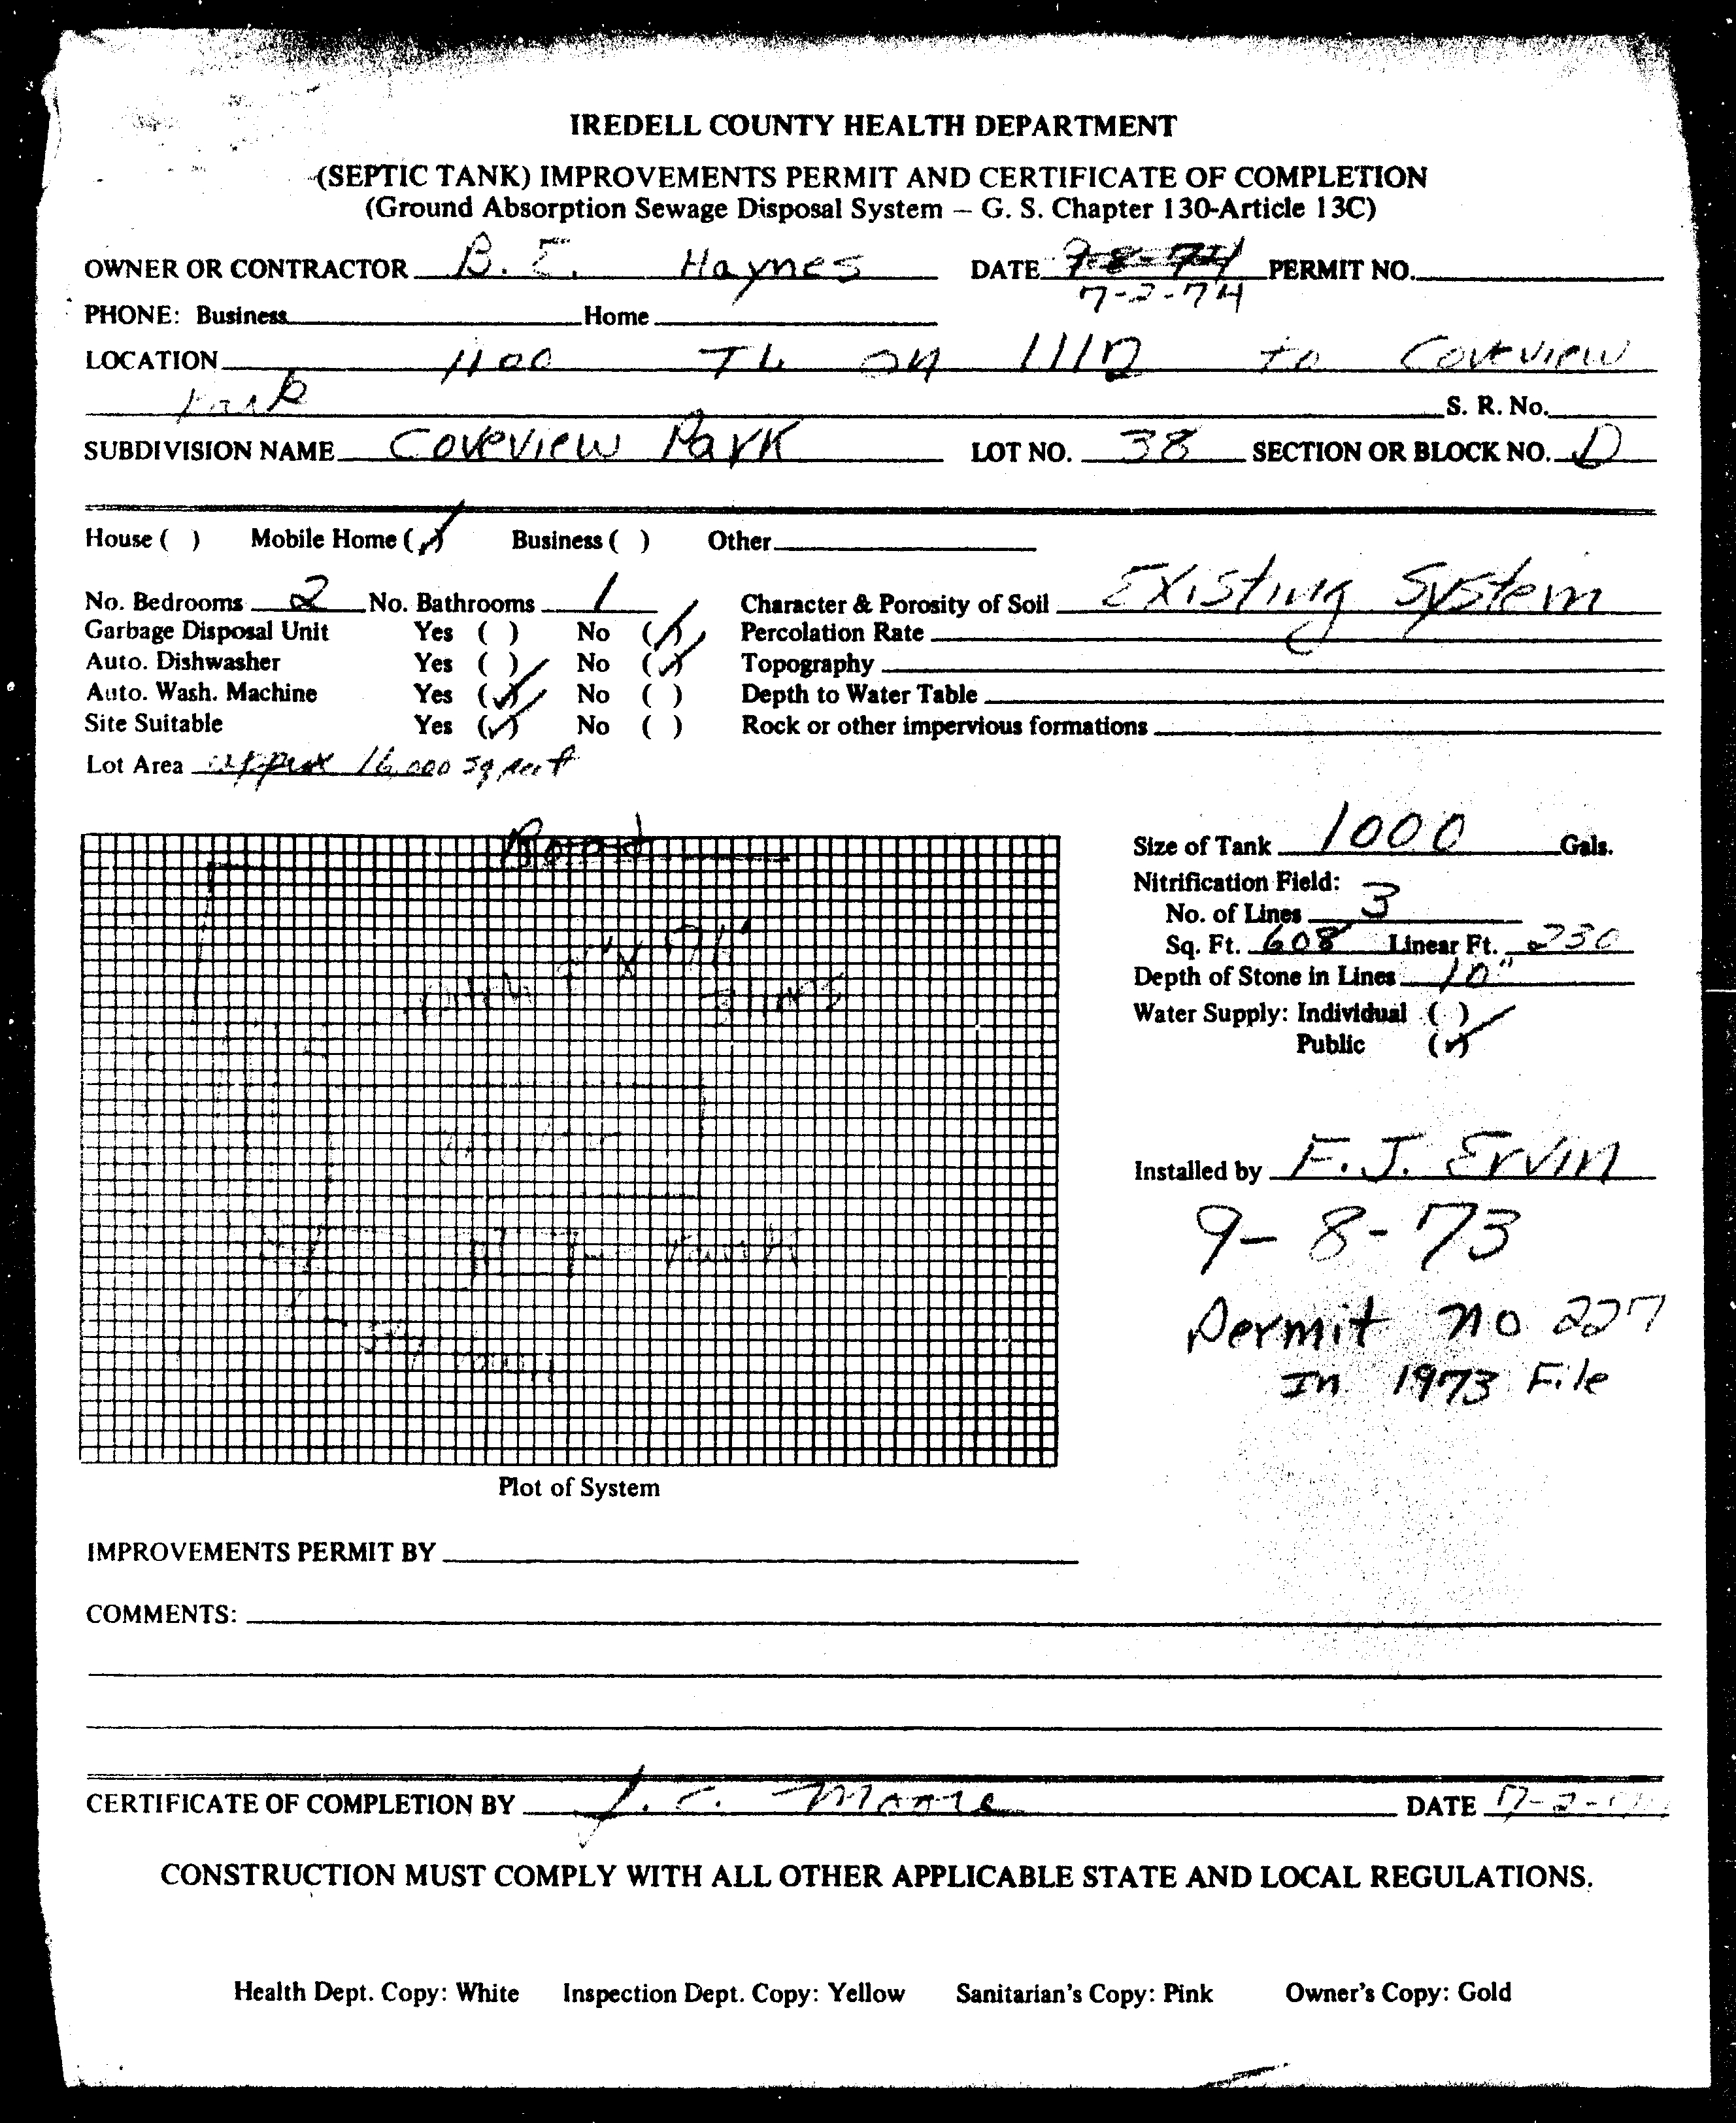 IREDELL COUNTY HEALTH DEPARTMENT
(SEPTIC TANK) IMPROVEMENTS PERMIT AND CERTIFICATE OF COMPLETION
(Ground Absorption Sewage Disposal System — G. S. Chapter 130-Article 13C)
OWNER OR CONTRACTOR B. E. Haynes DATE 9-8-74 PERMIT NO.
7-2-74
PHONE: Business Home
LOCATION 1100 TL on 1112 to Coveview
Park S. R. No.
SUBDIVISION NAME Coveview Park LOT NO. 38 SECTION OR BLOCK NO. D
House ( ) Mobile Home (✓) Business ( ) Other
No. Bedrooms 2 No. Bathrooms 1 Character & Porosity of Soil Existing System
Garbage Disposal Unit Yes ( ) No (✓) Percolation Rate
Auto. Dishwasher Yes ( ) No (✓) Topography
Auto. Wash. Machine Yes (✓) No ( ) Depth to Water Table
Site Suitable Yes (✓) No ( ) Rock or other impervious formations
Lot Area approx 16,000 sq feet
Road
Size of Tank 1000 Gals.
Nitrification Field:
No. of Lines 3
Sq. Ft. 608 Linear Ft. 230
Depth of Stone in Lines 10"
Water Supply: Individual ( )
Public (✓)
Installed by F. J. Ervin
9-8-73
Permit no 227
In 1973 File
Plot of System
IMPROVEMENTS PERMIT BY
COMMENTS:
CERTIFICATE OF COMPLETION BY J. C. Moore DATE 7-2-
CONSTRUCTION MUST COMPLY WITH ALL OTHER APPLICABLE STATE AND LOCAL REGULATIONS.
Health Dept. Copy: White Inspection Dept. Copy: Yellow Sanitarian's Copy: Pink Owner's Copy: Gold